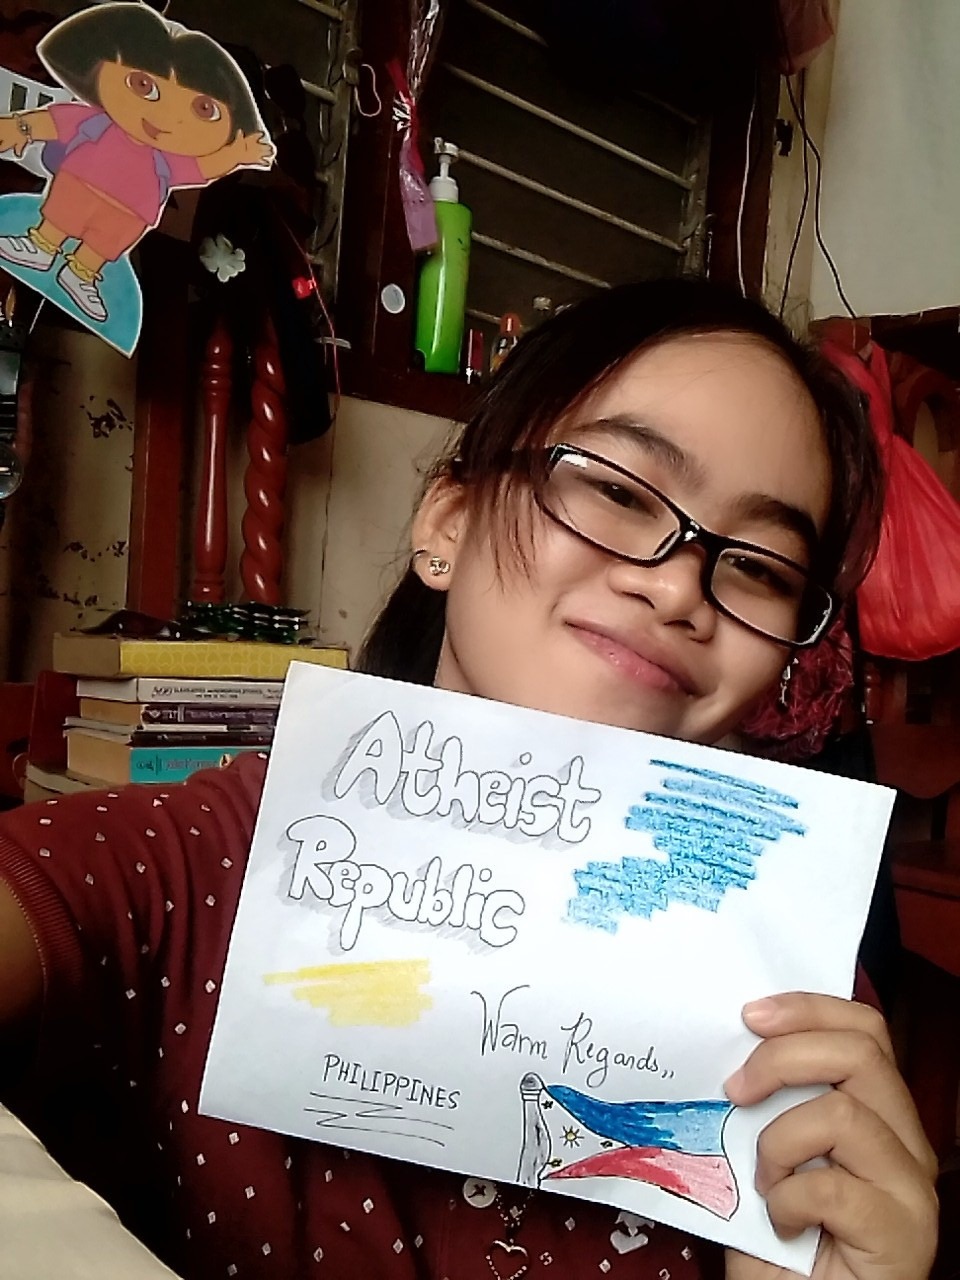 Atheist
Republic
Warm Regards,,
PHILIPPINES